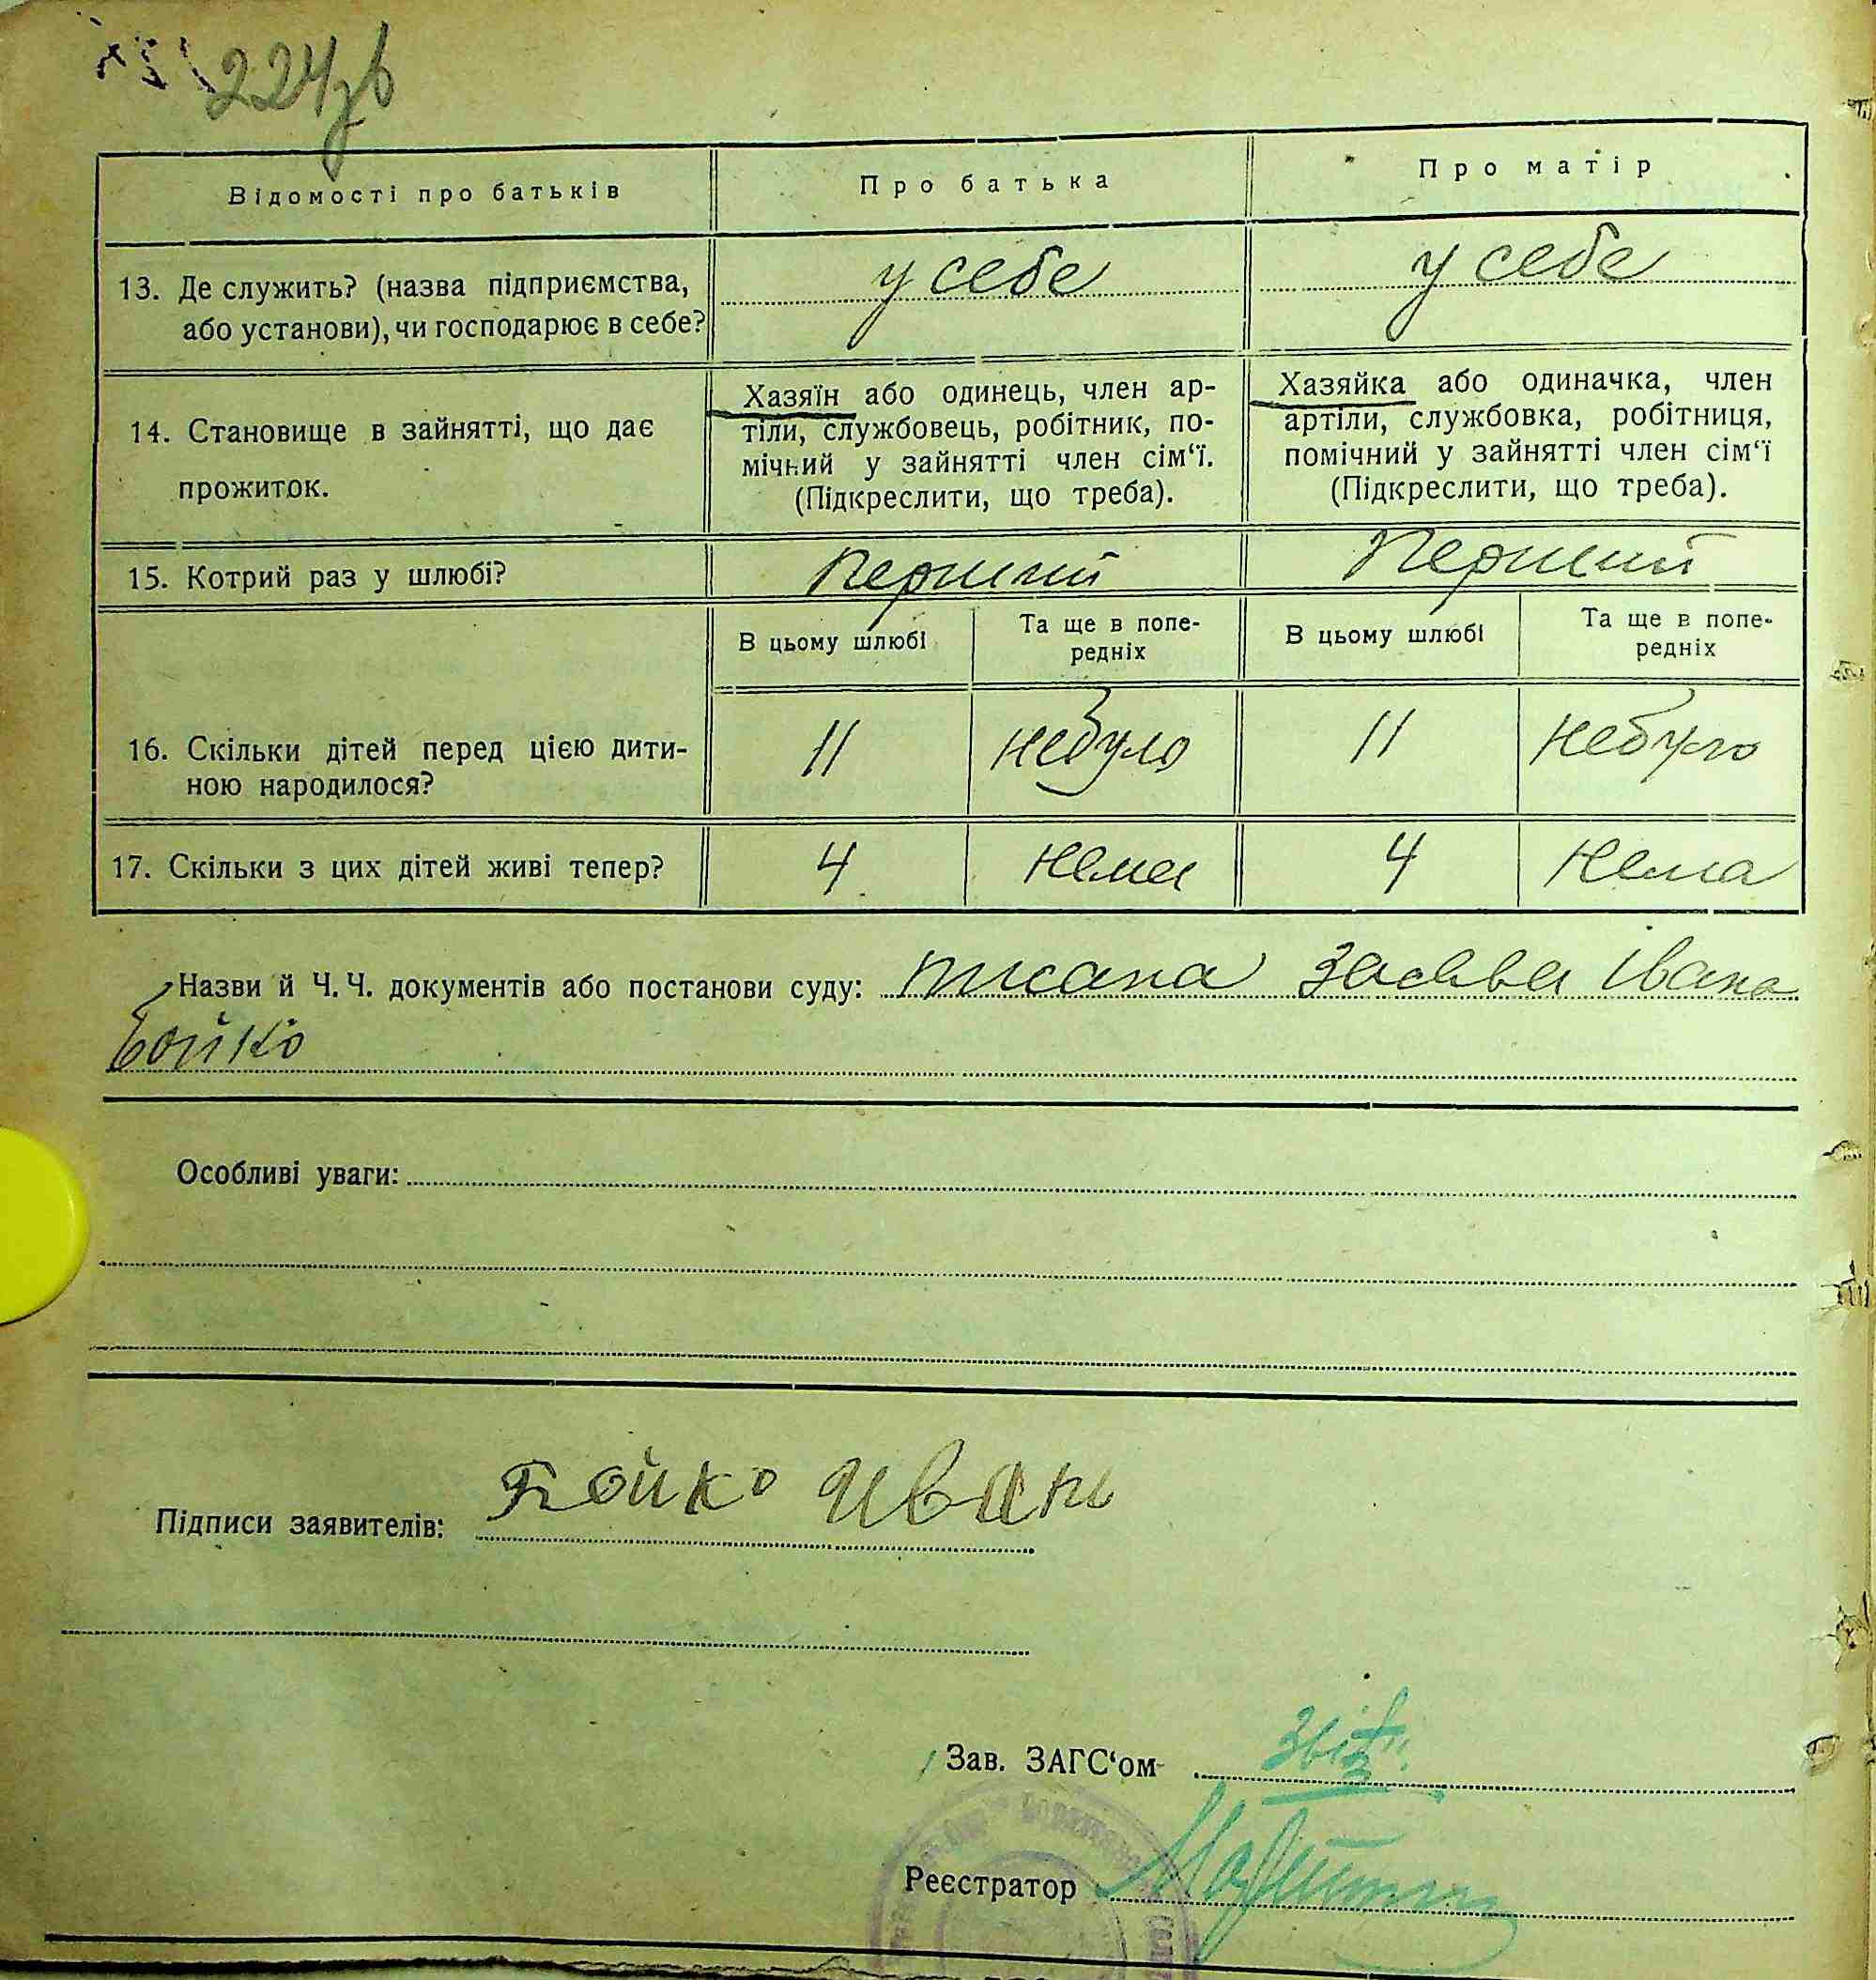 224зв
Відомості про батьків
Про батька
Про матір
13. Де служить? (назва підприємства,
або установи), чи господарює в себе?
у себе
у себе
14. Становище в зайнятті, що дає
прожиток.
Хазяїн або одинець, член ар-
тіли, службовець, робітник, по-
мічний у зайнятті член сім‘ї.
(Підкреслити, що треба).
Хазяйка або одиначка, член
артіли, службовка, робітниця,
помічний у зайнятті член сім‘ї
(Підкреслити, що треба).
15. Котрий раз у шлюбі?
Перший
Перший
В цьому шлюбі
Та ще в попе-
редніх
В цьому шлюбі
Та ще в попе-
редніх
16. Скільки дітей перед цією дити-
ною народилося?
11
небуло
11
небуло
17. Скільки з цих дітей живі тепер?
4
нема
4
нема
Назви й Ч. Ч. документів або постанови суду: писана заява Івана
Бойко
Особливі уваги:
Підписи заявителів: Бойко Иван
Зав. ЗАГС‘ом
Реєстратор